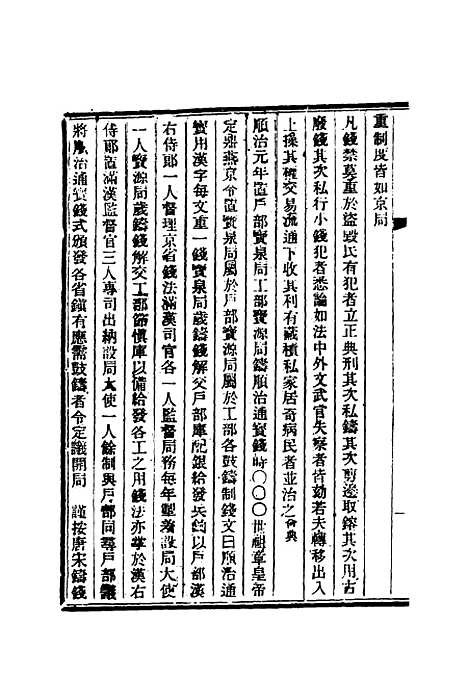 重制度皆如京局
凡錢禁莫重於盜毀民有犯者立正典刑其次私鑄其次剪邊取鎔其次用古
廢錢其次私行小錢犯者悉論如法中外文武官失察者皆劾若夫轉移出入
上操其權交易流通下收其利有藏積私家居奇病民者並治之會典
順治元年置戶部寶泉局工部寶源局鑄順治通寶錢時〇〇〇世祖章皇帝
定鼎燕京令置寶泉局屬於戶部寶源局屬於工部各鼓鑄制錢文曰順治通
寶用漢字每文重一錢寶泉局歲鑄錢解交戶部庫配銀給發兵餉以戶部漢
右侍郎一人督理京省錢法滿漢司官各一人監督局務每年更差設局大使
一人寶源局歲鑄錢解交工部節慎庫以備給發各工之用錢法亦掌於漢右
侍郎置滿漢監督官三人專司出納設局大使一人餘制與戶部同尋戶部議
將順治通寶錢式頒發各省鎮有應需鼓鑄者令定議開局 謹按唐宋鑄錢